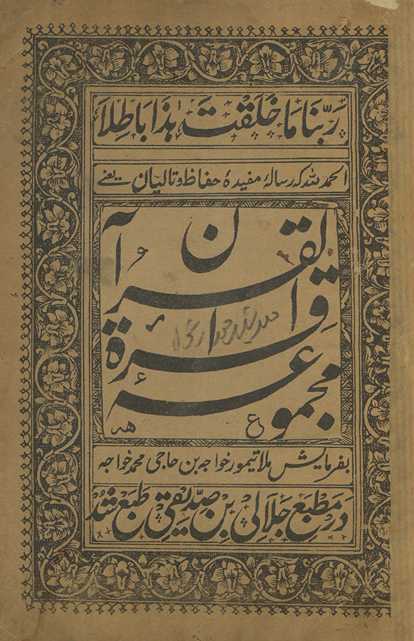 ربنا ما خلقت هذا باطلا
الحمد لله که رسالهٔ مفیده حفاظ و تالیان یعنے
مجموعه قراءة القرآن
بفرمایش ملا تیمور خواجه بن حاجی محمد خواجه
در مطبع جلالی بن صدیقی طبع شد